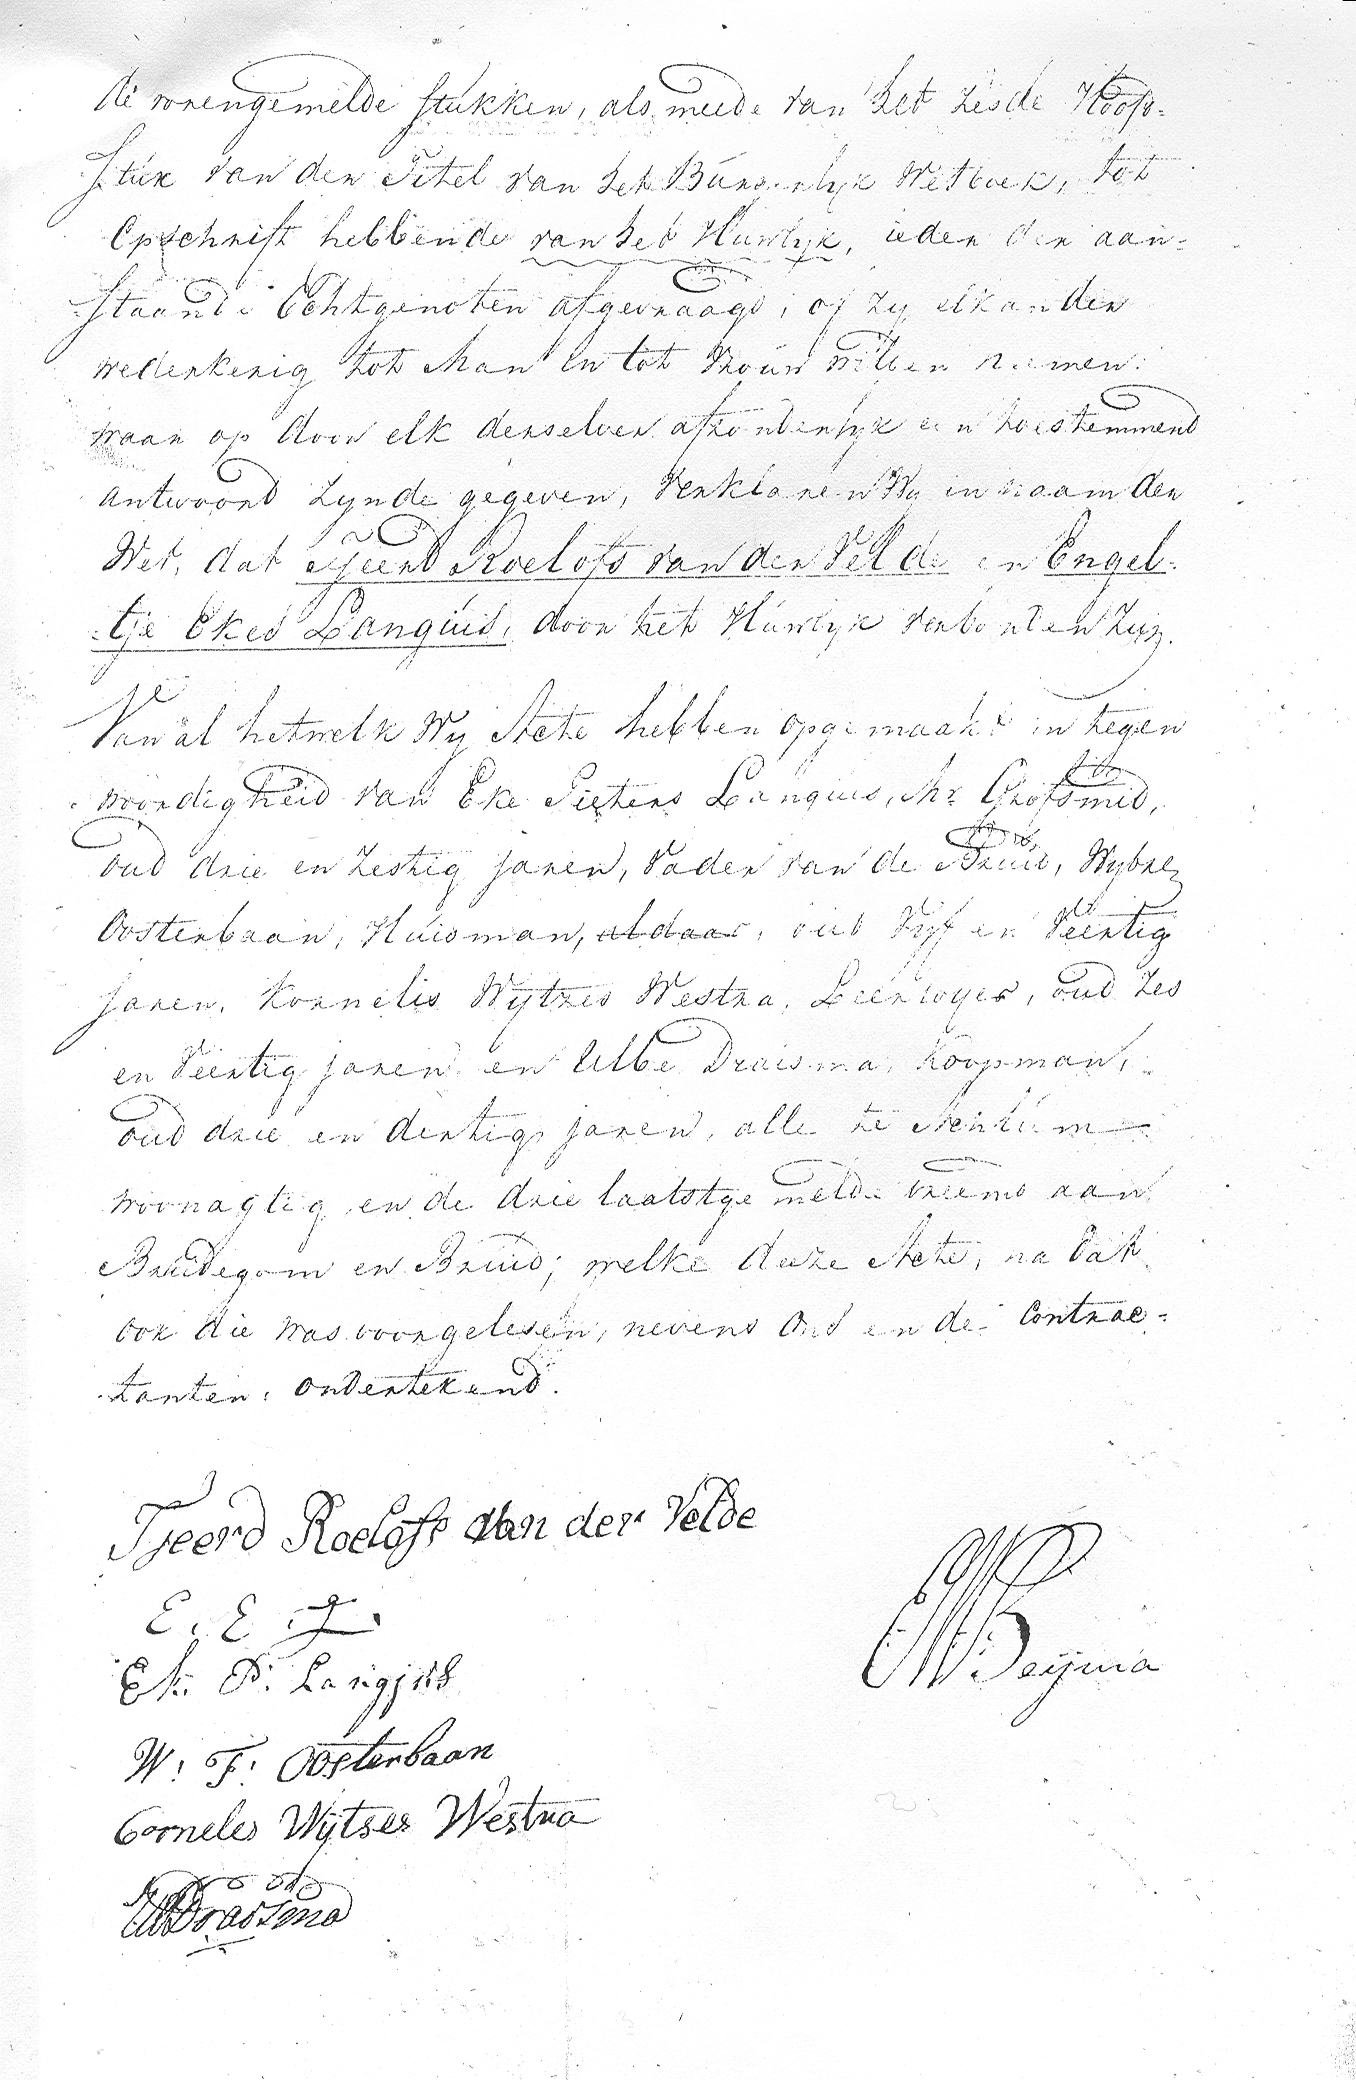 de vorengemelde stukken, als meede van het zesde Hoofd-
stuk van den Titel van het Burgerlyk Wetboek, tot
Opschrift hebbende van het Huwlyk, ieder der aan-
staande Echtgenoten afgevraagd, of zy elkander
wederkerig tot Man en tot Vrouw willen nemen:
waar op door elk derselver afzonderlyk een toestemmend
antwoord zynde gegeven, verklaren Wy in naam der
Wet, dat Tjeerd Roelofs van der Velde en Engel-
tje Ekes Languis, door het Huwlyk verbonden zyn.
Van al hetwelk Wy Acte hebben opgemaakt in tegen
woordigheid van Eke Pieters Languis, Mr. Grofsmid,
oud drie en zestig jaren, Vader van de Bruid, Wybre
Oosterbaan, Huisman, aldaar, oud Vyf en Veertig
jaren, Kornelis Wytzes Westra, Leerloyer, oud zes
en Veertig jaren en Ulbe Draisma, Koopman,
oud drie en dertig jaren, alle te Achlum
woonagtig en de drie laatstgemelde vreemd aan
Bruidegom en Bruid; welke deeze Acte, na dat
voor die was voorgelesen, nevens Ons en de Contrac-
tanten, ondertekend.
Tjeerd Roelofs van der Velde
E. E. L
Ek. P. Langjus
W: F: Oosterbaan
Corneles Wytses Westra
Draisma
Beijma